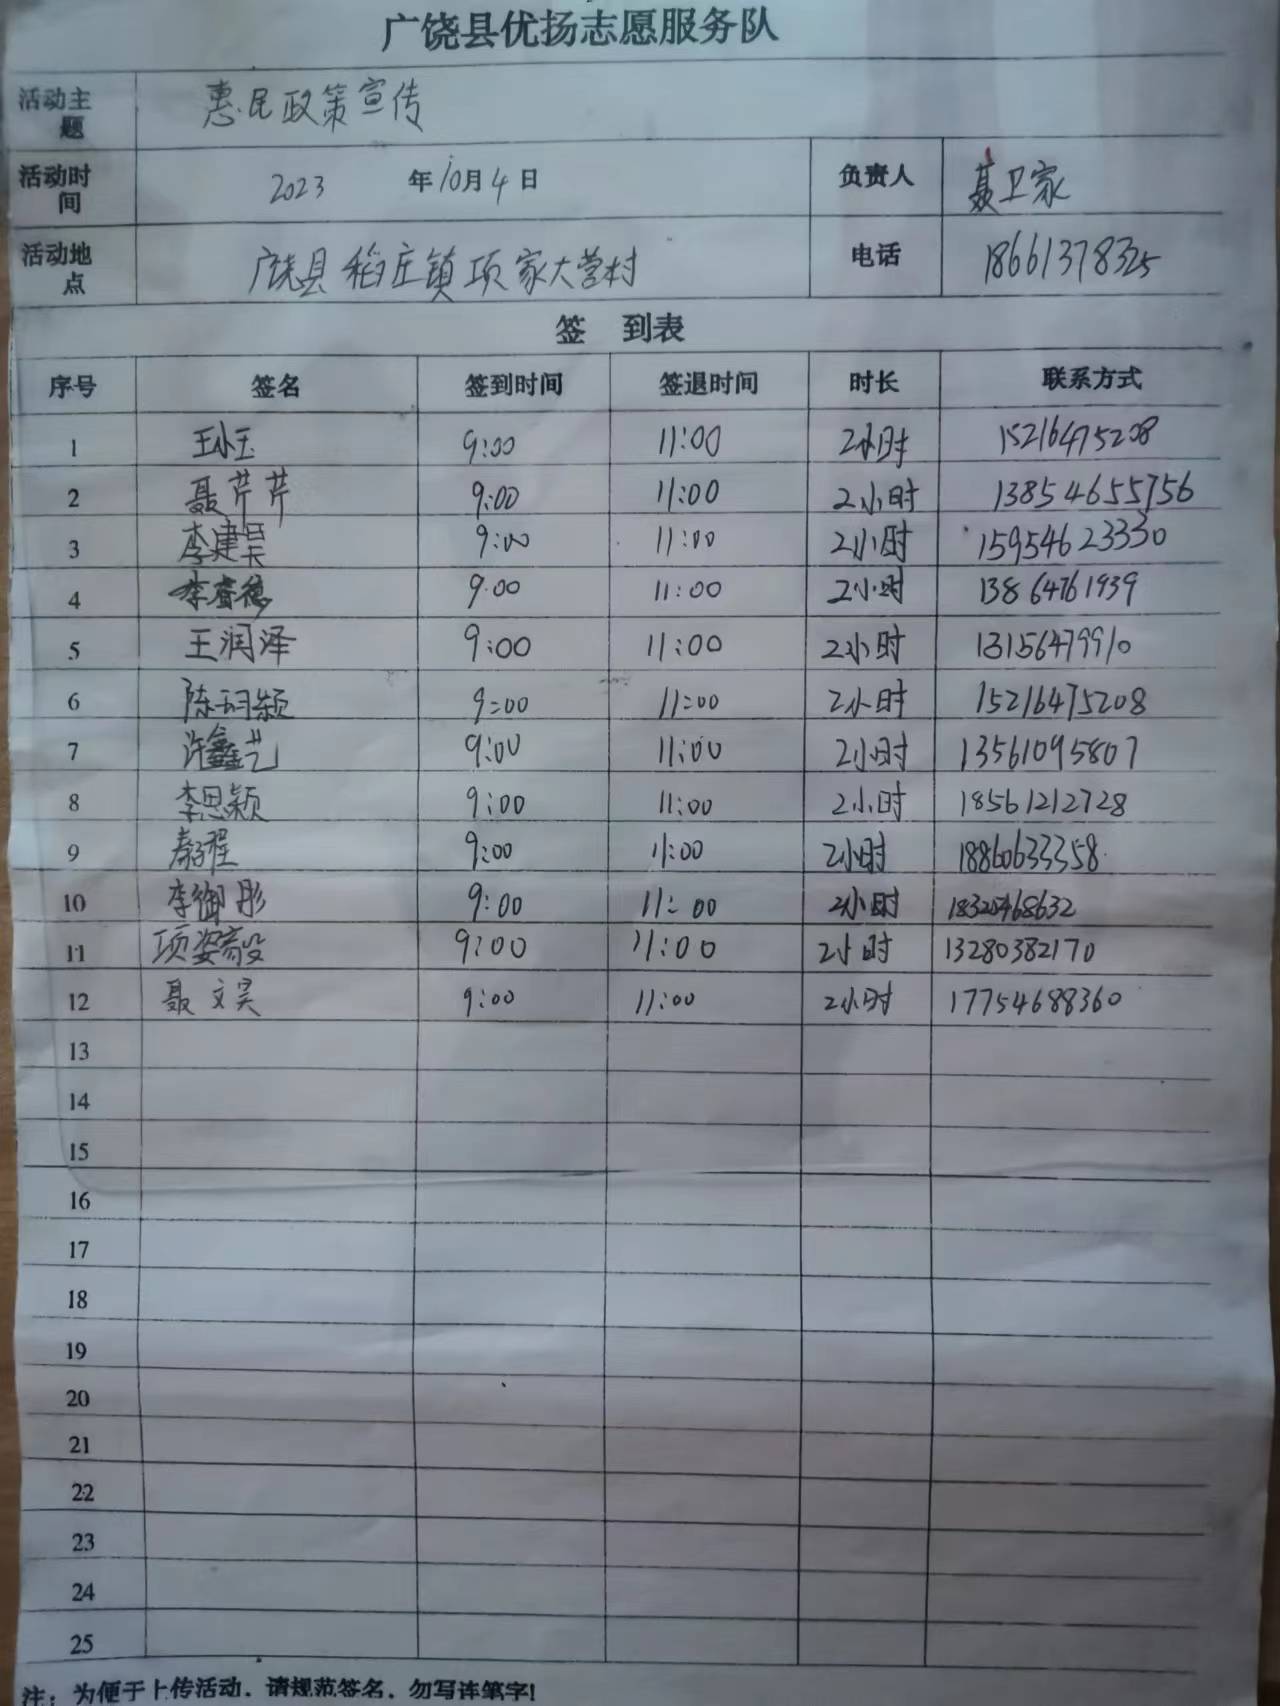 广饶县优扬志愿服务队
活动主题 惠民政策宣传
活动时间 2023 年10月4日 负责人 聂卫家
活动地点 广饶县稻庄镇项家大营村 电话 18661378325
签 到表
序号 签名 签到时间 签退时间 时长 联系方式
1 王小玉 9:00 11:00 2小时 15216475208
2 聂芹芹 9:00 11:00 2小时 13854655756
3 李建昊 9:00 11:00 2小时 15954623330
4 李睿德 9:00 11:00 2小时 13864761939
5 王润泽 9:00 11:00 2小时 13156479910
6 陈玥颖 9:00 11:00 2小时 15216475208
7 许鑫艺 9:00 11:00 2小时 13561095807
8 李思颖 9:00 11:00 2小时 18561212728
9 秦程 9:00 11:00 2小时 18860633358
10 李御彤 9:00 11:00 2小时 18320468632
11 项姿毅 9:00 11:00 2小时 13280382170
12 聂文昊 9:00 11:00 2小时 17754688360
13
14
15
16
17
18
19
20
21
22
23
24
25
注：为便于上传活动，请规范签名，勿写连笔字!